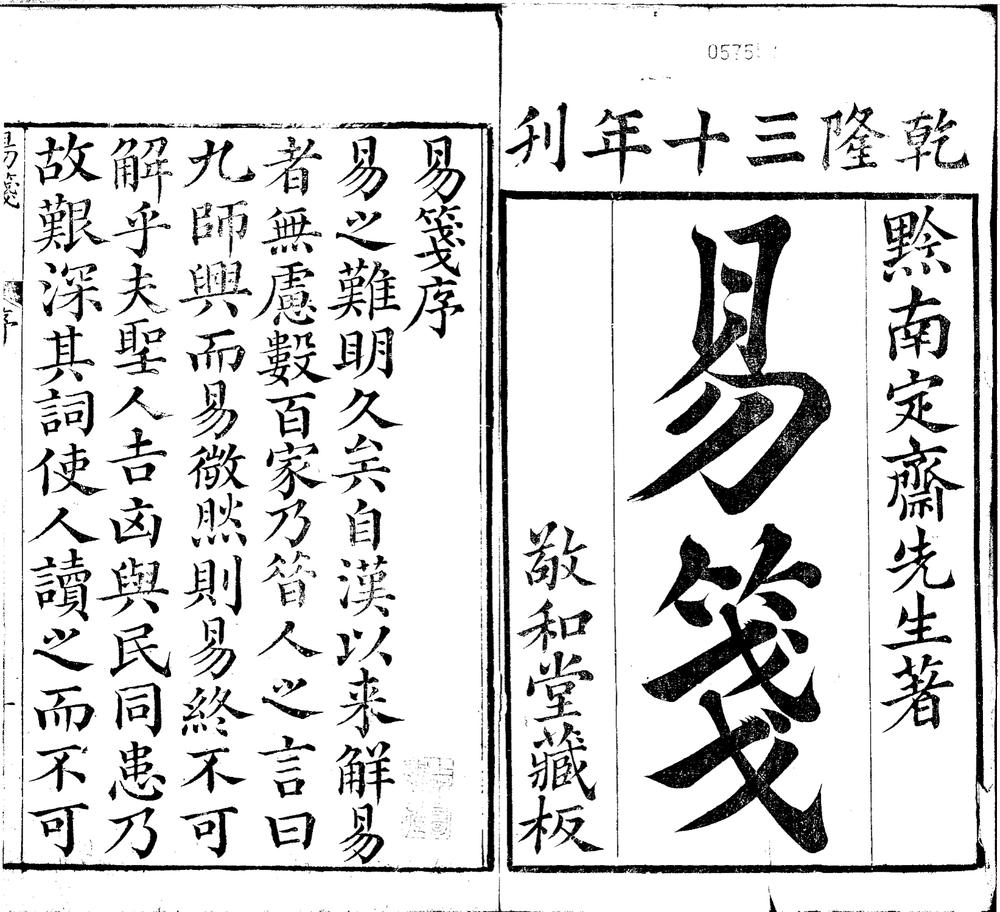 乾隆三十年刋
黔南定齋先生著
易箋
敬和堂藏板
易箋序
易之難明久矣自漢以来解易
者無慮數百家乃昝人之言曰
九師興而易微然則易終不可
解乎夫聖人吉凶與民同患乃
故艱深其詞使人讀之而不可
易箋
序
一
0575